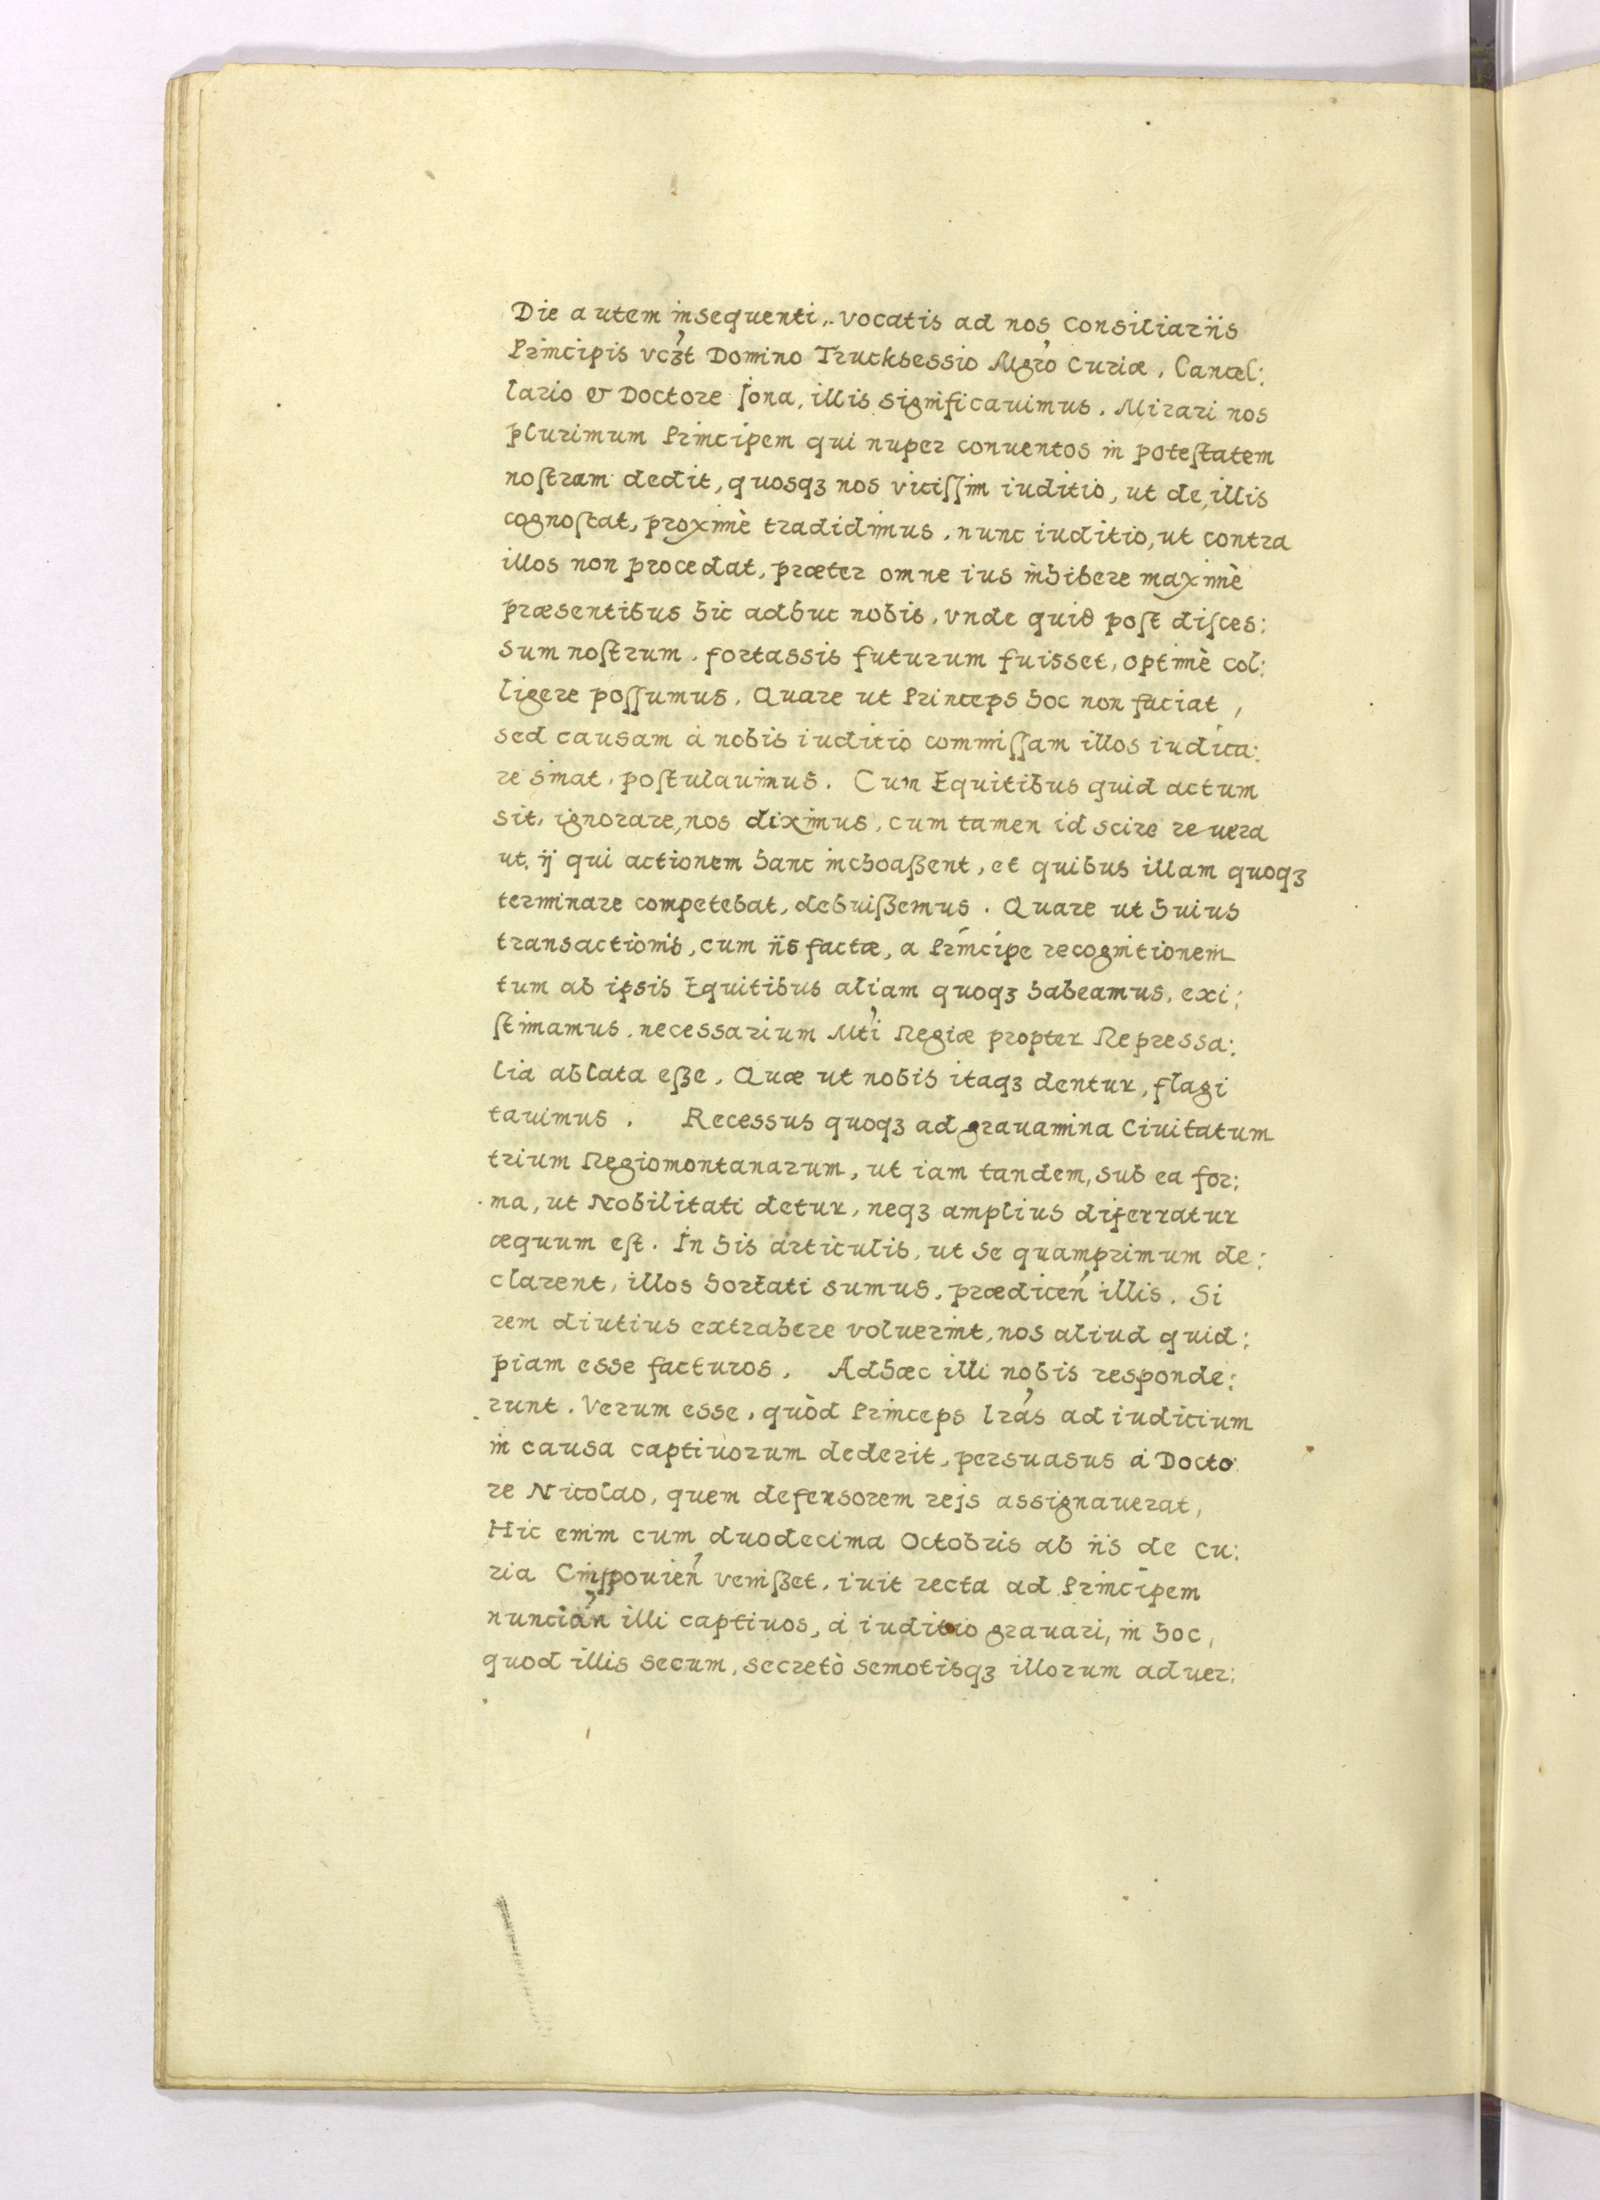 Die autem insequenti, vocatis ad nos Consiliariis
Principis vcꝫt Domino Trucksessio Mgro Curiæ, Cancel:
lario & Doctore Jona, illis significauimus. Mirari nos
plurimum Principem qui nuper conuentos in poteſtatem
noſtram dedit, quosqꝫ nos viciſſim iuditio, ut de illis
cognoſcat, proximè tradidimus, nunc iuditio, ut contra
illos non procedat, præter omne ius inhibere maximè
præsentibus hic adhuc nobis, vnde quid poſt diſces:
sum noſtrum, fortassis futurum fuisset, optimè col:
ligere poſſumus. Quare ut Princeps hoc non faciat,
sed causam à nobis iuditio commiſſam illos iudica:
re sinat, poſtulauimus. Cum Equitibus quid actum
sit, ignorare, nos diximus, cum tamen id scire reuera
ut ij qui actionem hanc inchoaßent, et quibus illam quoqꝫ
terminare competebat, debuißemus. Quare ut huius
transactionis, cum iis factæ, a Principe recognitionem
tum ab ipsis Equitibus aliam quoqꝫ habeamus, exi:
ſtimamus, necessarium Mti Regiæ propter Repressa:
lia ablata eße. Quæ ut nobis itaqꝫ dentur, flagi
tauimus. Recessus quoqꝫ ad grauamina Ciuitatum
trium Regiomontanarum, ut iam tandem, sub ea for:
ma, ut Nobilitati detur, neqꝫ amplius diferratur
æquum eſt. In his articulis, ut se quamprimum de:
clarent, illos hortati sumus, prædicen illis. Si
rem diutius extrahere voluerint, nos aliud quid:
piam esse facturos. Adhæc illi nobis responde:
runt. Verum esse, quòd Princeps lras ad iudicium
in causa captiuorum dederit, persuasus à Docto
re Nicolao, quem defensorem rejs assignauerat,
Hic enim cum duodecima Octobris ab iis de Cu:
ria Cnipouien venißet, iuit recta ad Principem
nuncian illi captiuos, à iuditio grauari, in hoc,
quod illis secum, secretò semotisqꝫ illorum aduer: